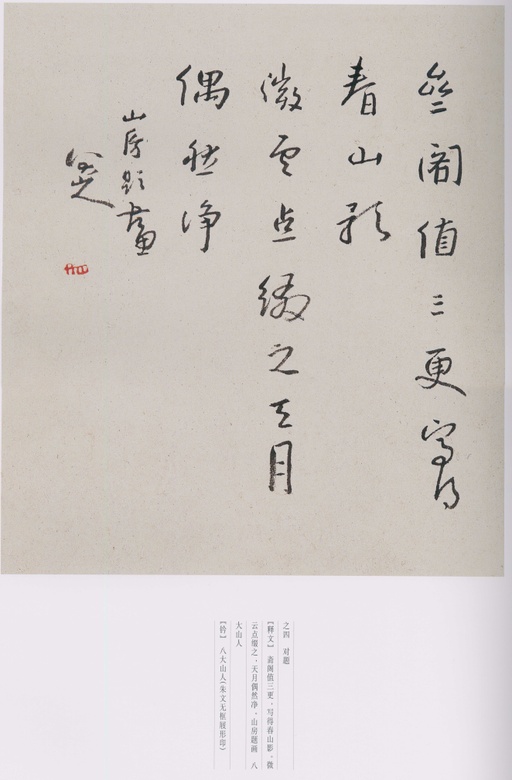 亝閣值三更寫得
春山影
微雲点綴之天月
偶然净
山房題畫
八大山人
之四 对题
【释文】 斋阁值三更，写得春山影。微
云点缀之，天月偶然净。山房题画 八
大山人
【钤】 八大山人（朱文无框屐形印）